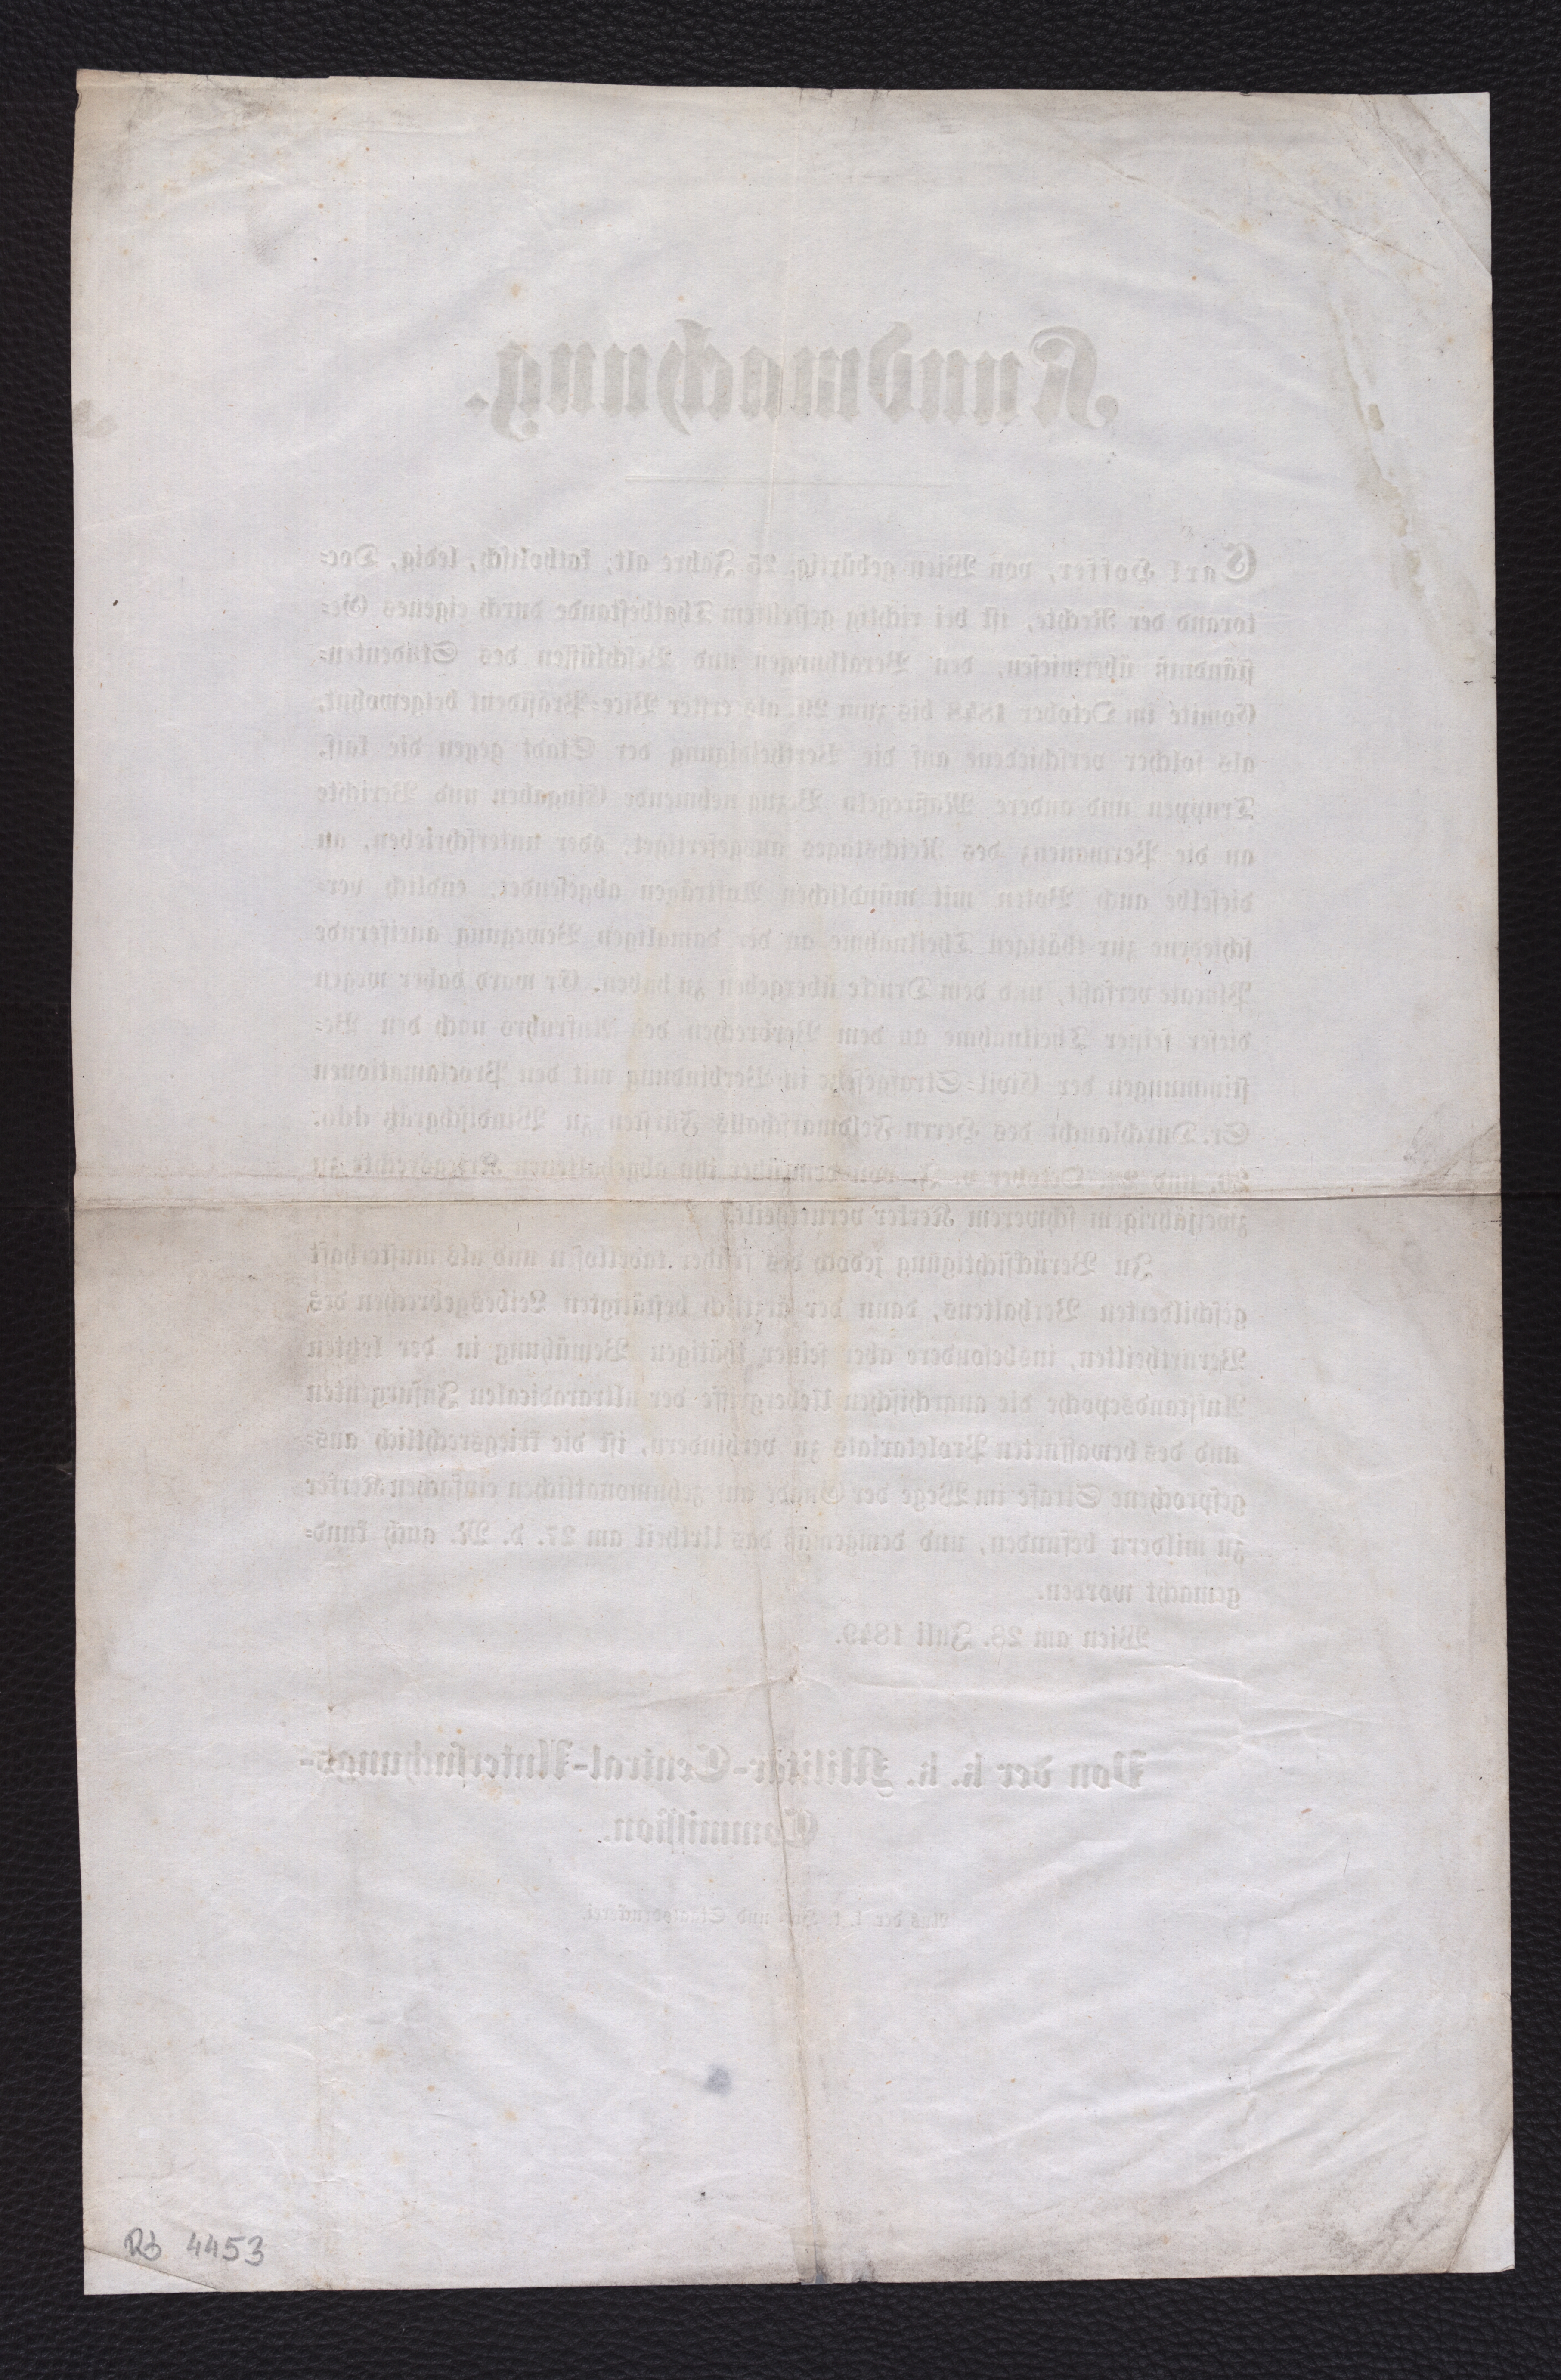 Kundmachung.
Carl Hoffer, von Wien gebürtig, 25 Jahre alt, katholisch, ledig, Doc-
torand der Rechte, ist bei richtig gestelltem Thatbestande durch eigenes Ge-
ständniß überwiesen, den Berathungen und Beschlüssen des Studenten-
Comité im October 1848 bis zum als erster Vice-Präsident beigewohnt,
als solcher verschiedene auf die Vertheidigung der Stadt gegen die kais.
Truppen und andere Maßregeln Bezug nehmende Eingaben und Berichte
an die Permanenz des Reichstages ausgefertiget, oder unterschrieben, an
dieselbe auch Boten mit mündlichen Aufträgen abgesendet, endlich ver-
schiedene zur thätigen Theilnahme an der damaligen Bewegung aneifernde
Placate verfaßt, und dem Drucke übergeben zu haben. Er ward daher wegen
dieser seiner Theilnahme an dem Verbrechen des Aufruhrs nach den Be-
stimmungen der Civil-Strafgesetze in Verbindung mit den Proclamationen
Sr. Durchlaucht des Herrn Feldmarschalls Fürsten zu Windischgrätz ddo.
20. und 23. October v. J. von dem über ihn abgehaltenen Kriegsrechte zu
zweijährigem schwerem Kerker verurtheilt.
In Berücksichtigung jedoch des früher tadellosen und als musterhaft
geschilderten Verhaltens, dann der ärztlich bestätigten Leibesgebrechen des
Verurtheilten, insbesondere aber seiner thätigen Bemühung in der letzten
Aufstandsepoche die anarchischen Uebergriffe der ultraradicalen Insurgenten
und des bewaffneten Proletariats zu verhindern, ist die kriegsrechtlich aus-
gesprochene Strafe im Wege der Gnade auf zehnmonatlichen einfachen Kerker
zu mildern befunden, und demgemäß das Urtheil am 27. d. M. auch kund-
gemacht worden.
Wien am 28. Juli 1849.
Von der k. k. Militär-Central-Untersuchungs-
Commission.
Aus der k. k. Hof- und Staatsdruckerei.
Rb 4453